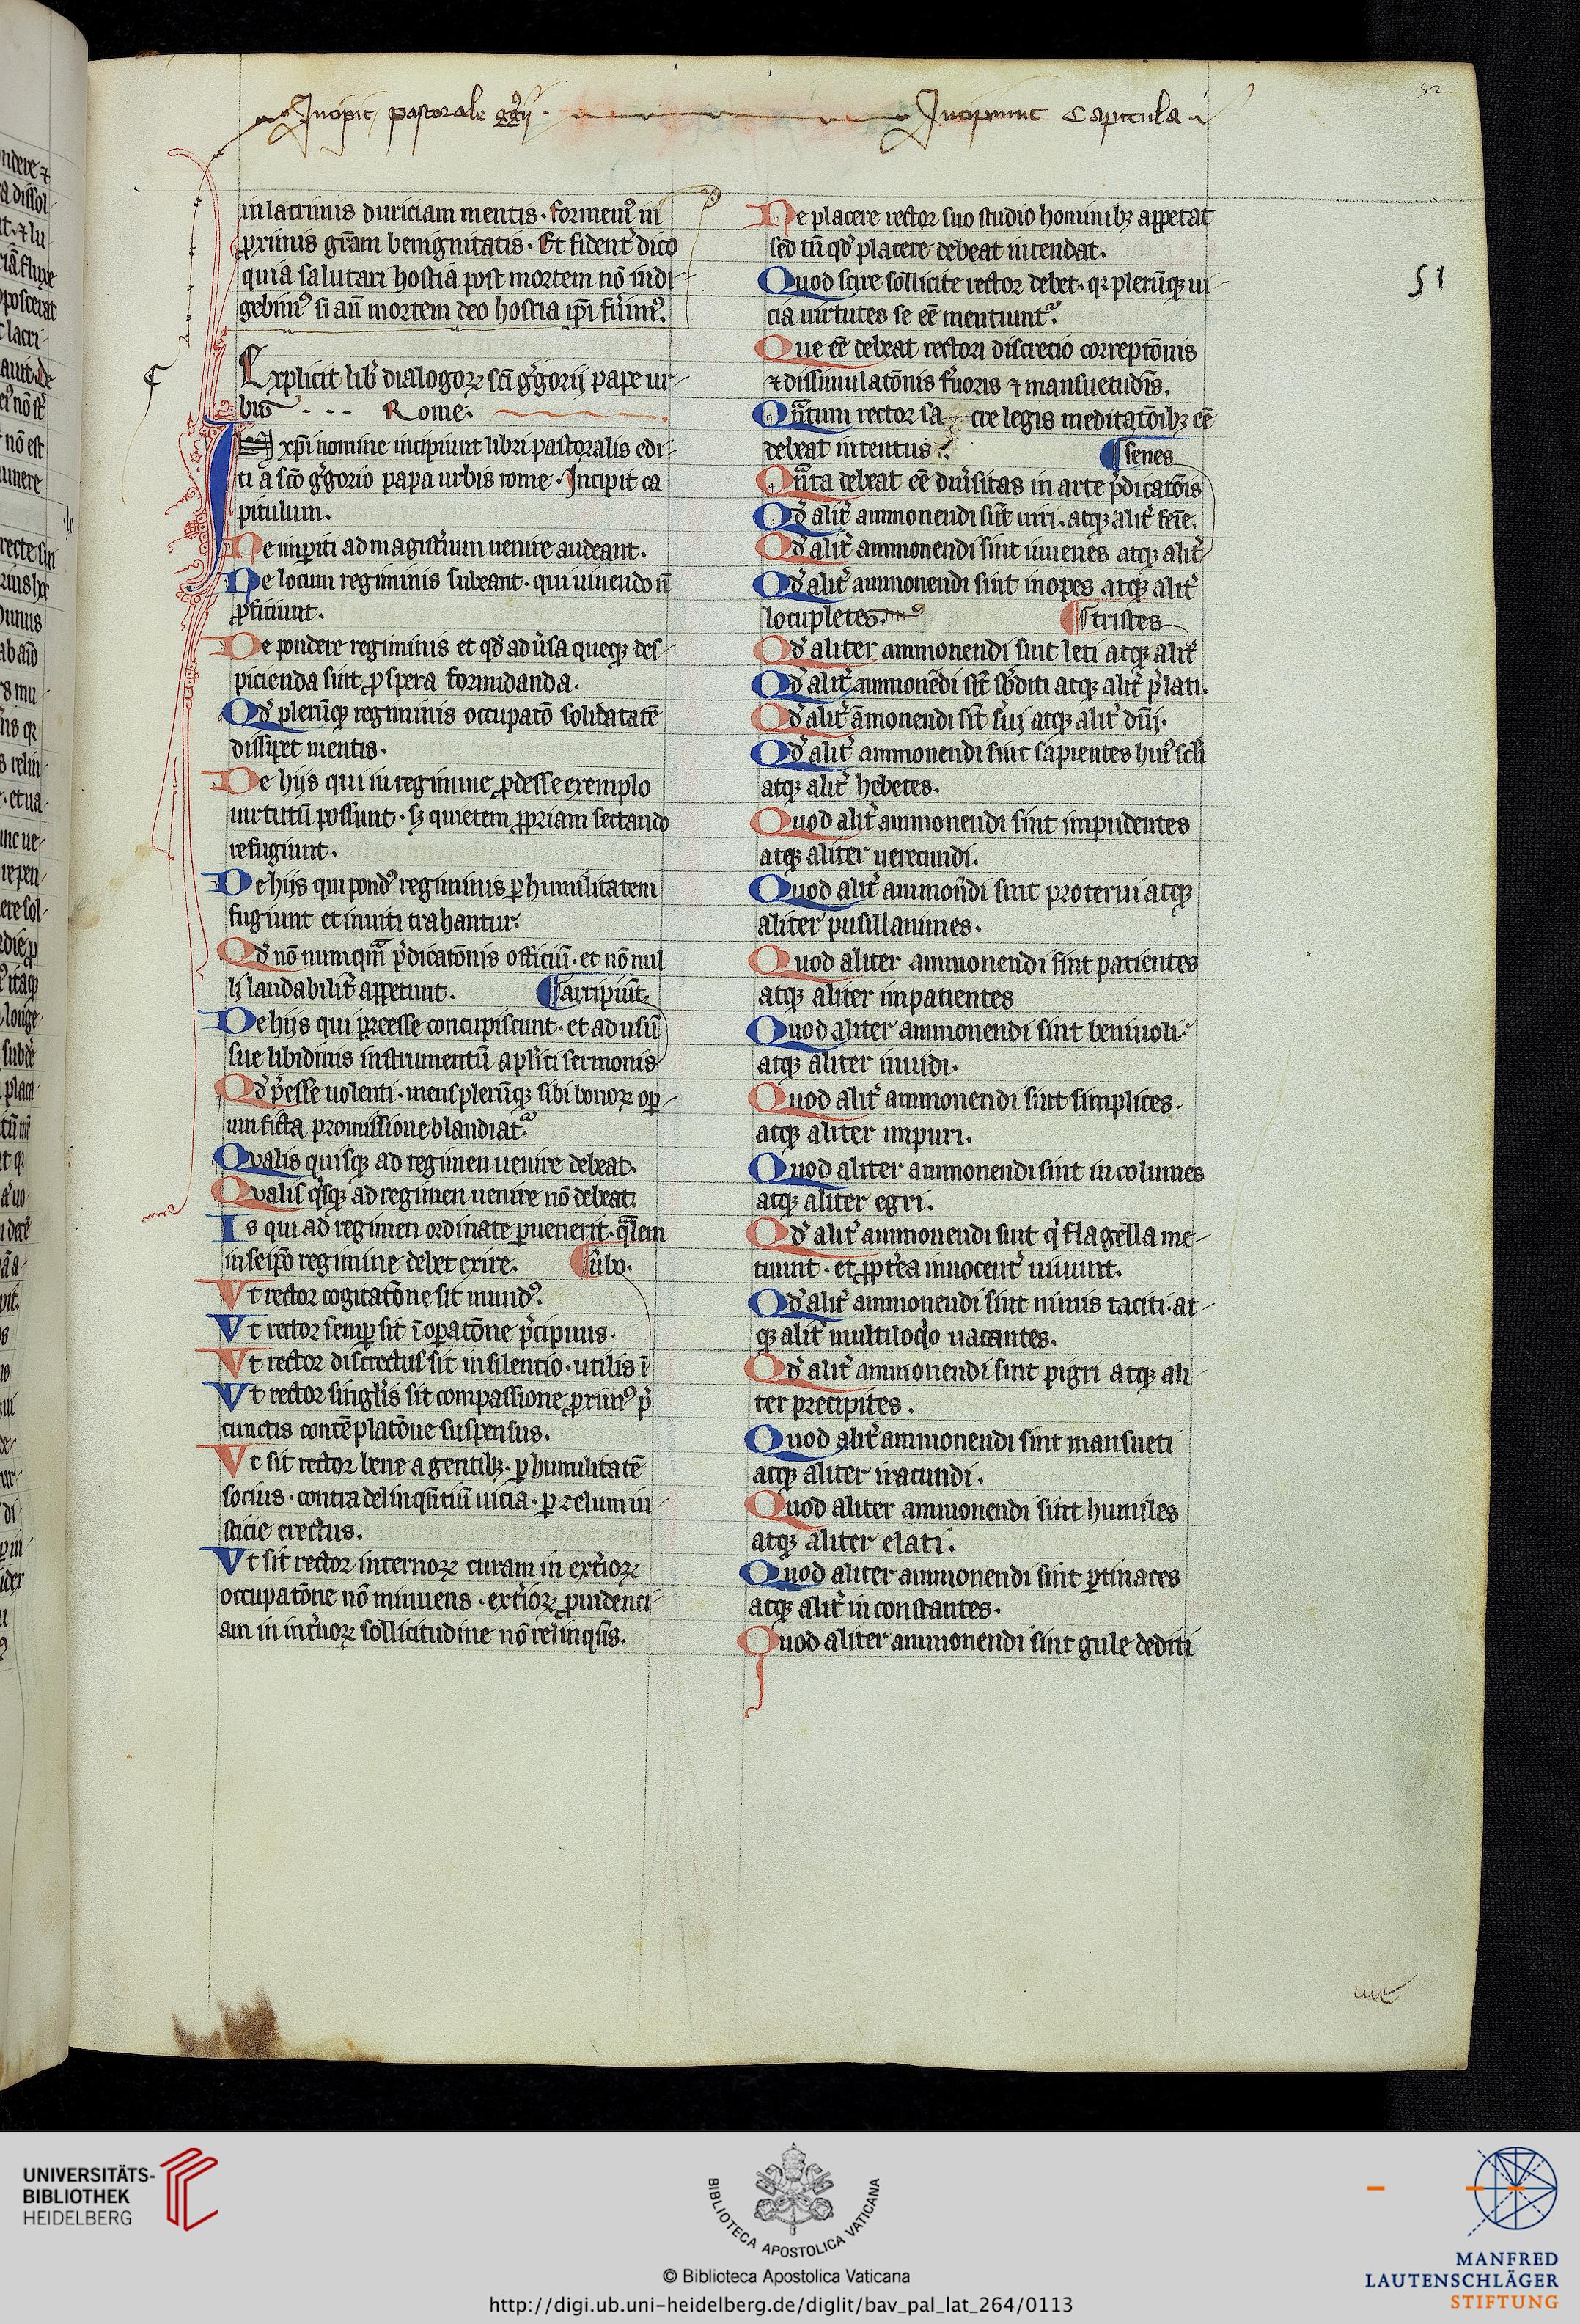 Incipit pastorale gg̃ii · Incipiunt Capitula
52
51
in lacrimis duriciam mentis · formemꝰ in
ꝓximis gr̄am benignitatis · Et fident᷑ dico
quia salutari hostia post mortem nō indi-
gebimꝰ si an̄ mortem deo hostia ip̄i fu᷑imꝰ.
Explicit lib᷑ dialogoꝝ sc̄i g᷑gorij pape ur-
bis · · · Rome.
In xp̄i nomine incipiunt libri pastoralis edi-
ti a sc̄o g᷑gorio papa urbis rome · Incipit ca
pitulum.
Ne impiti ad magist᷑ium uenire audeant.
Ne locum regiminis subeant · qui uiuendo n̄
ꝓficiunt.
De pondere regiminis et qd̓ adu᷑sa queqꝫ des-
picienda sint ꝓspera formidanda.
Qd̓ plerūqꝫ regiminis occupatō solidatatē
dissipet mentis.
De hijs qui in regimine ꝓdesse exemplo
uirtutū possunt · sꝫ quietem ꝓpriam sectando
refugiunt.
De hijs qui pondꝰ regiminis ꝑ humilitatem
fugiunt et inuiti trahantur.
Qd̓ nō numqm̄ p᷑dicatōnis officiū · et nō nul
li laudabilit᷑ appetunt. ¶arripiūt.
De hijs qui preesse concupiscunt · et ad usū
sue libidinis instrumentū apl̓ici sermonis
Qd̓ p᷑esse uolenti · mens plerūqꝫ sibi bonoꝝ oꝑ-
um ficta promissione blandiat᷑.
Qualis quisqꝫ ad regimen uenire debeat.
Qualis q̓sqꝫ ad regimen uenire nō debeat.
Is qui ad regimen ordinate ꝑuenerit · qͣlem
in seip̄o regimine debet exire. ¶ubo.
Vt rector cogitatōne sit mundꝰ.
Vt rector semꝑ sit ī oꝑatōne p᷑cipuus.
Vt rector discrectus sit in silentio · utilis ī
Vt rector singl̓is sit compassione ꝓximꝰ p᷑
cunctis contēplatōne suspensus.
Vt sit rector bene agentibꝫ · ꝑ humilitatē
socius · contra delinqn̄tiū uicia · ꝑ zelum iu-
sticie erectus.
Vt sit rector internoꝝ curam in ext᷑ioꝝ
occupatōne nō minuens · ext᷑ioꝝ ꝓuidenci-
am in int᷑noꝝ sollicitudine nō relinqn̄s.
Ne placere rector suo studio hominibꝫ appetat
sed tn̄ qd̓ placere debeat intendat.
Quod scire sollicite rector debet · qꝛ plerūqꝫ ui-
cia uirtutes se eē mentiunt᷑.
Que eē debeat rectori discretio correptōnis
⁊ dissimulatōnis fu᷑oris ⁊ mansuetudīs.
Qn̄tum rector sa-cre legis meditatōibꝫ eē
debeat intentus. ¶senes
Qn̄ta debeat eē diu᷑sitas in arte p᷑dicatōis
Qd̓ alit᷑ ammonendi sūt uiri · atqꝫ alit᷑ feīe.
Qd̓ alit᷑ ammonendi sint iuuenes atqꝫ alit᷑
Qd̓ alit᷑ ammonendi sint inopes atqꝫ alit᷑
locupletes. ¶tristes
Qd̓ aliter ammonendi sint leti atqꝫ alit᷑
Qd̓ alit᷑ ammonēdi sīt sb̓diti atqꝫ alit᷑ p᷑lati.
Qd̓ alit᷑ āmonendi sīt s᷑ui atqꝫ alit᷑ dn̄i.
Qd̓ alit᷑ ammonendi sint sapientes huiꝰ scl̓i
atqꝫ alit᷑ hebetes.
Quod alit᷑ ammonendi sint impudentes
atqꝫ aliter uerecundi.
Quod alit᷑ ammon̄di sint proterui atqꝫ
aliter pusillanimes.
Quod aliter ammonendi sint patientes
atqꝫ aliter impatientes
Quod aliter ammonendi sint beniuoli
atqꝫ aliter inuidi.
Quod alit᷑ ammonendi sint simplices.
atqꝫ aliter impuri.
Quod aliter ammonendi sint incolumes
atqꝫ aliter egri.
Qd̓ alit᷑ ammonendi sint q̓ flagella me-
tuunt · et ꝓpt᷑ea innocent᷑ uiuunt.
Qd̓ alit᷑ ammonendi sint nimis taciti · at-
qꝫ alit᷑ multiloq̓o uacantes.
Qd̓ alit᷑ ammonendi sint pigri atqꝫ ali-
ter precipites.
Quod alit᷑ ammonendi sint mansueti
atqꝫ aliter iracundi.
Quod aliter ammonendi sint humiles
atqꝫ aliter elati.
Quod aliter ammonendi sint ꝑtinaces
atqꝫ alit᷑ inconstantes.
Quod aliter ammonendi sint gule dediti
UNIVERSITÄTS-
BIBLIOTHEK
HEIDELBERG
BIBLIOTECA APOSTOLICA VATICANA
© Biblioteca Apostolica Vaticana
http://digi.ub.uni-heidelberg.de/diglit/bav_pal_lat_264/0113
MANFRED
LAUTENSCHLÄGER
STIFTUNG